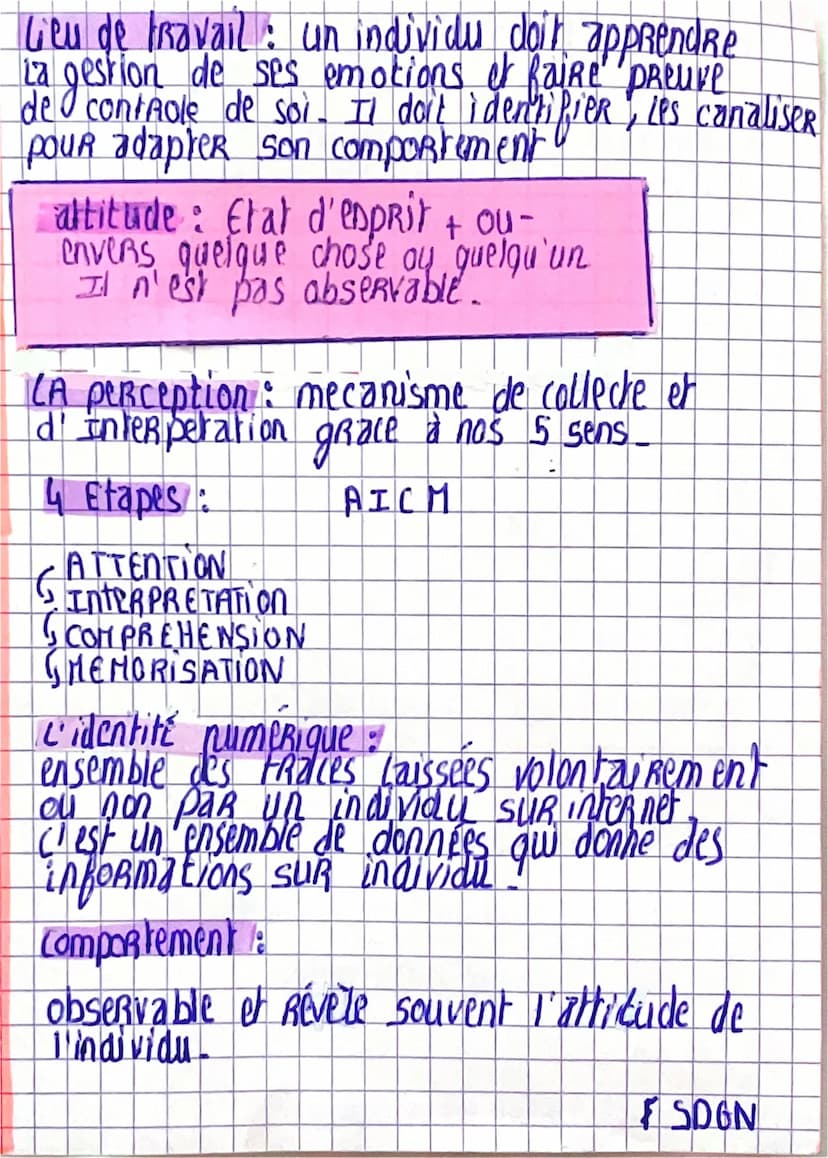 Lieu de travail : un individu doit apprendre
La gestion de ses emotions et faire preuve
de controle de soi. Il doit identifier, les canaliser
pour adapter son comportement
attitude : Etat d'esprit + ou -
envers quelque chose ou quelqu'un
Il n'est pas observable.
LA perception : mecanisme de collecte et
d'Interpetation grace à nos 5 sens.
4 Etapes : AICM
ATTENTION
INTERPRETATION
COMPREHENSION
MEMORISATION
L'identité numérique :
ensemble des traces laissées volontairement
ou non par un individu sur internet,
c'est un ensemble de données qui donne des
informations sur individu.
comportement :
observable et révèle souvent l'attitude de
l'individu.
SDGN